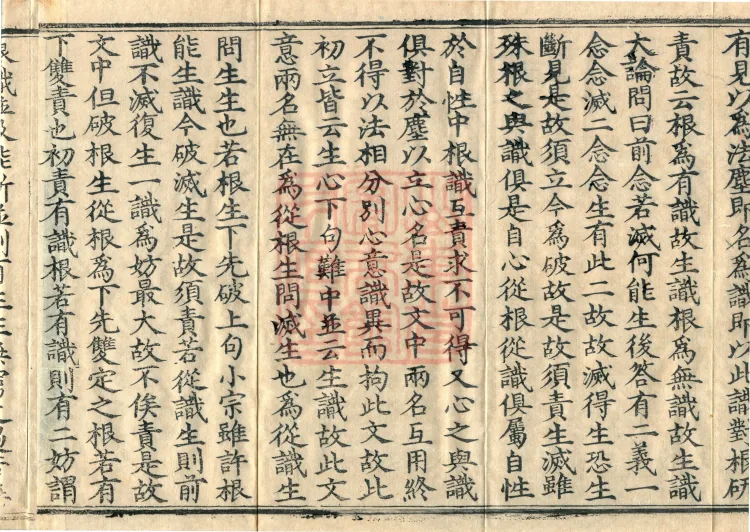 有見以為法塵即名為識即以此識對根研
責故云根為有識故生識根為無識故生識
大論問曰前念若滅何能生後答有二義一
念念滅二念念生有此二故故滅得生恐生
斷見是故須立今為破故是故須責生滅雖
殊根之與識俱是自心從根從識俱屬自性
於自性中根識互責求不可得又心之與識
俱對於塵以立心名是故文中兩名互用終
不得以法相分別心意識異而拘此文故此
初立皆云生心下句難中並云生識故此文
意兩名無在為從根生問滅生也為從識生
問生生也若根生下先破上句小宗雖許根
能生識今破滅生是故須責若從識生則前
識不滅復生一識為妨最大故不俟責是故
文中但破根生從根為下先雙定之根若有
下雙責也初責有識根若有識則有二妨謂